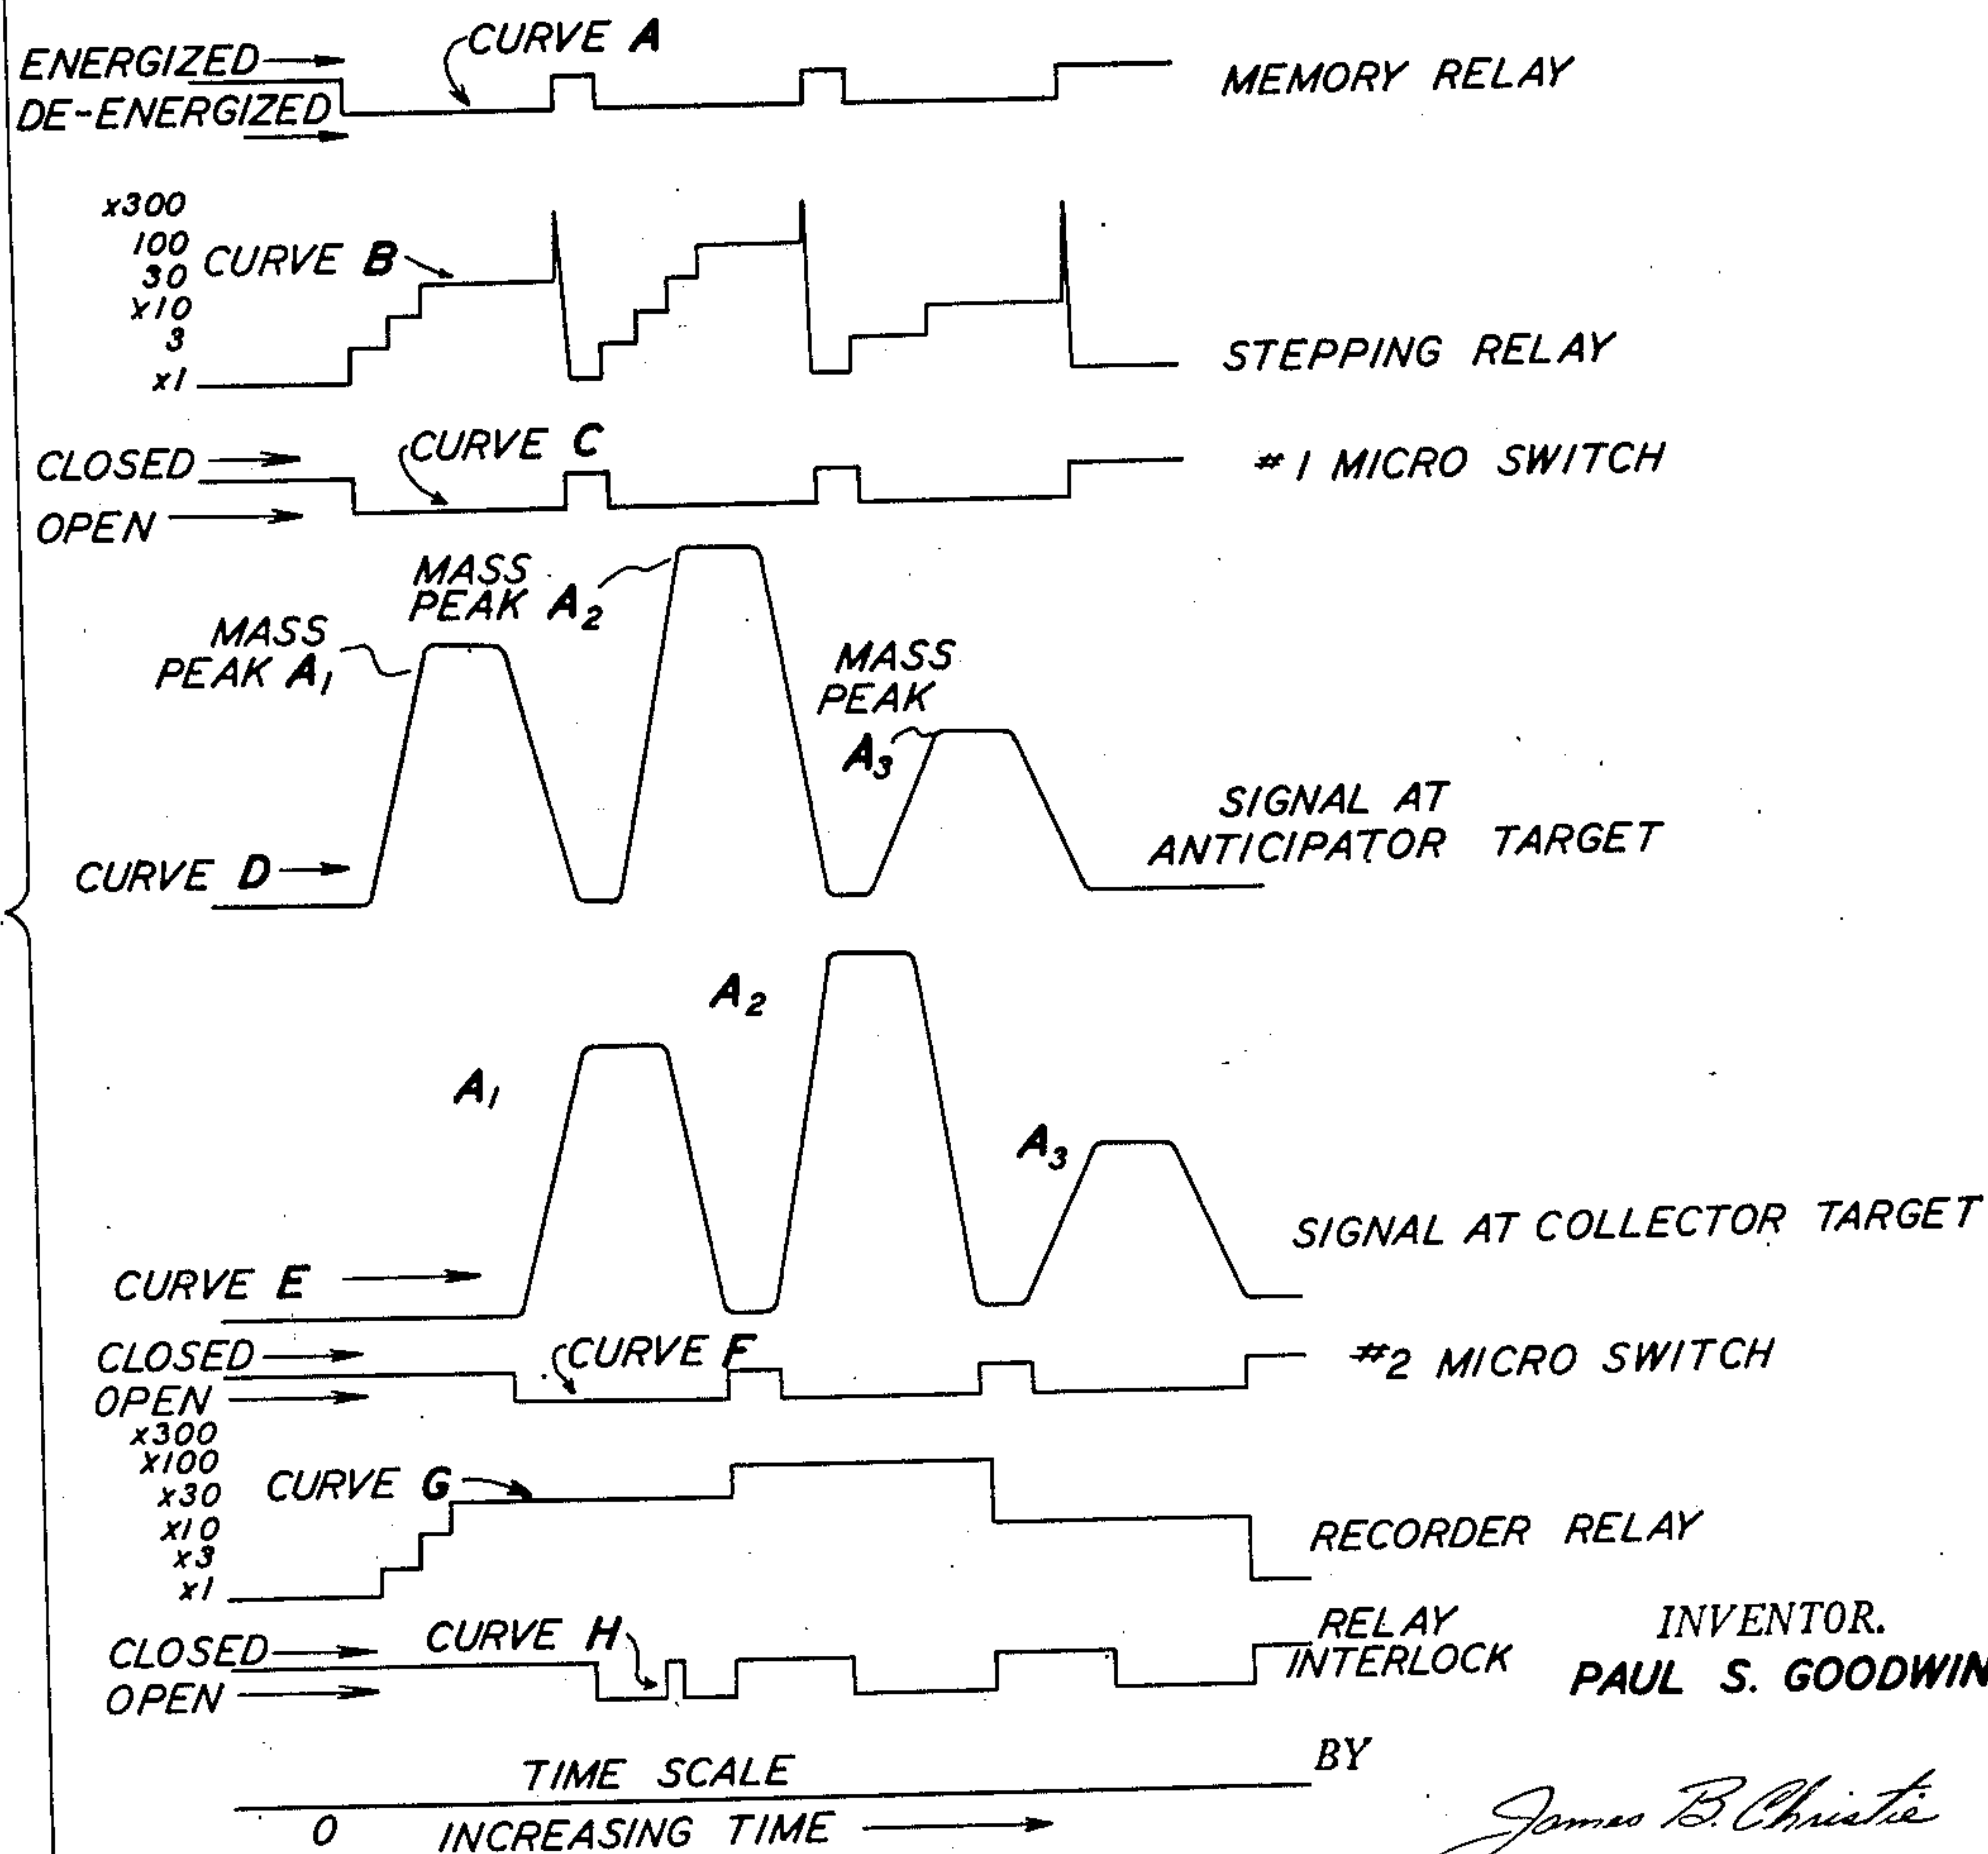 ENERGIZED
CURVE A
DE-ENERGIZED
MEMORY RELAY
x300
100
30
x10
3
x1
CURVE B
STEPPING RELAY
CLOSED
CURVE C
OPEN
#1 MICRO SWITCH
MASS
PEAK A1
MASS
PEAK A2
MASS
PEAK
A3
CURVE D
SIGNAL AT
ANTICIPATOR TARGET
A1
A2
A3
CURVE E
SIGNAL AT COLLECTOR TARGET
CLOSED
CURVE F
OPEN
#2 MICRO SWITCH
x300
x100
x30
x10
x3
x1
CURVE G
RECORDER RELAY
CLOSED
CURVE H
OPEN
RELAY
INTERLOCK
INVENTOR.
PAUL S. GOODWIN
BY
James B. Christie
TIME SCALE
0 INCREASING TIME